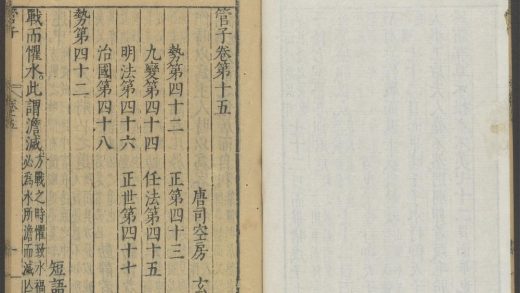 管子卷第十五
唐司空房
勢第四十二 正第四十三
九變第四十四 任法第四十五
明法第四十六 正世第四十七
治國第四十八
勢第四十二
短語
戰而懼水此謂澹滅方戰之時懼致水禍必為水所澹而滅
管子